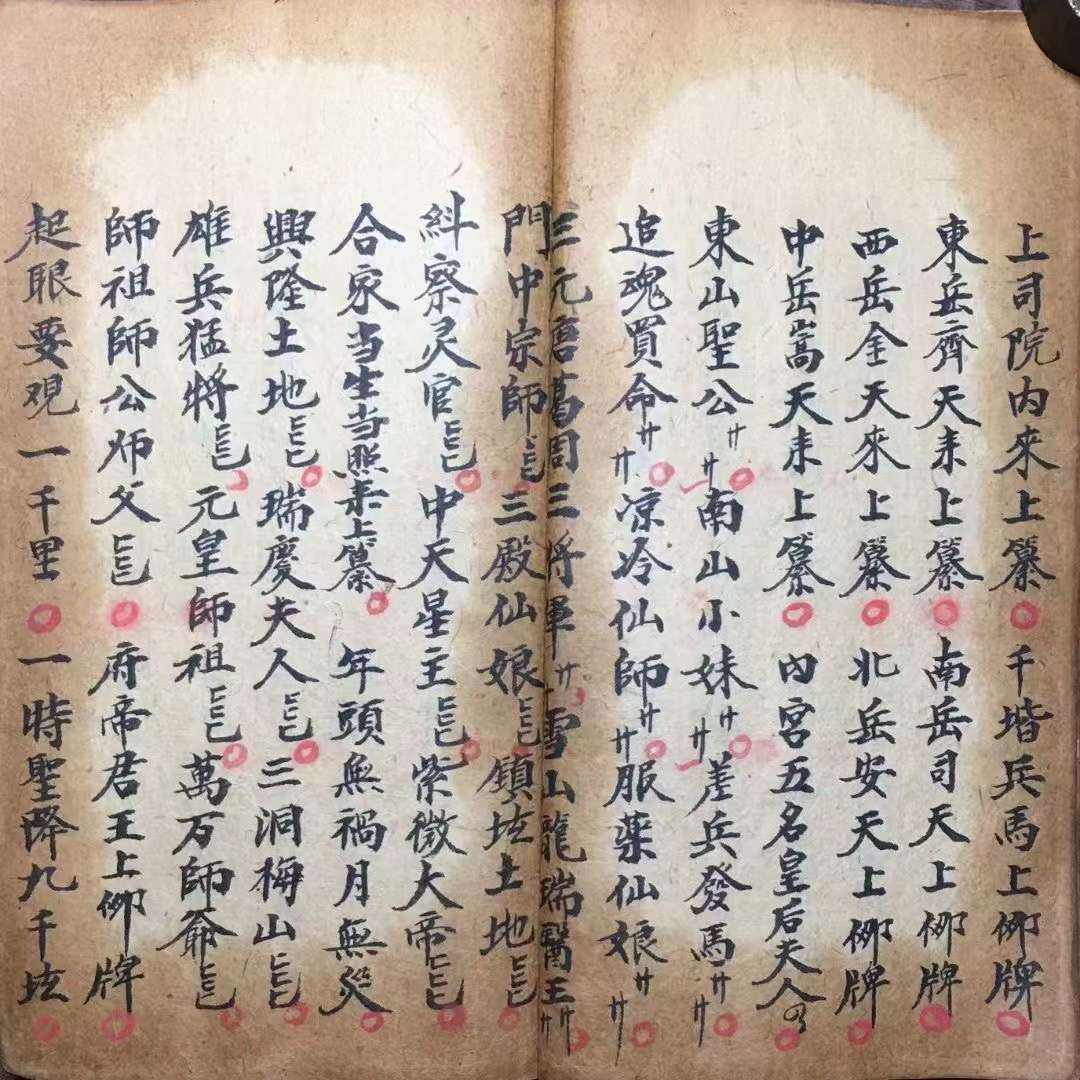 上司院内來上篆千增兵馬上仰牌
東岳齊天来上篆南岳司天上仰牌
西岳金天來上篆北岳安天上仰牌
中岳嵩天来上篆内宮五名皇后夫人
東山聖公南山小妹差兵發馬
追魂買命凉冷仙師服藥仙娘
三元唐葛周三将軍雪山龍瑞醫王
門中宗師三殿仙娘鎮坛土地
糾察灵官中天星主紫微大帝
合家当生当照来上篆年頭無禍月無災
興隆土地瑞慶夫人三洞梅山
雄兵猛將元皇師祖萬万師爺
師祖師公师父府帝君王上仰牌
起眼要观一千里一時聖降九千坛